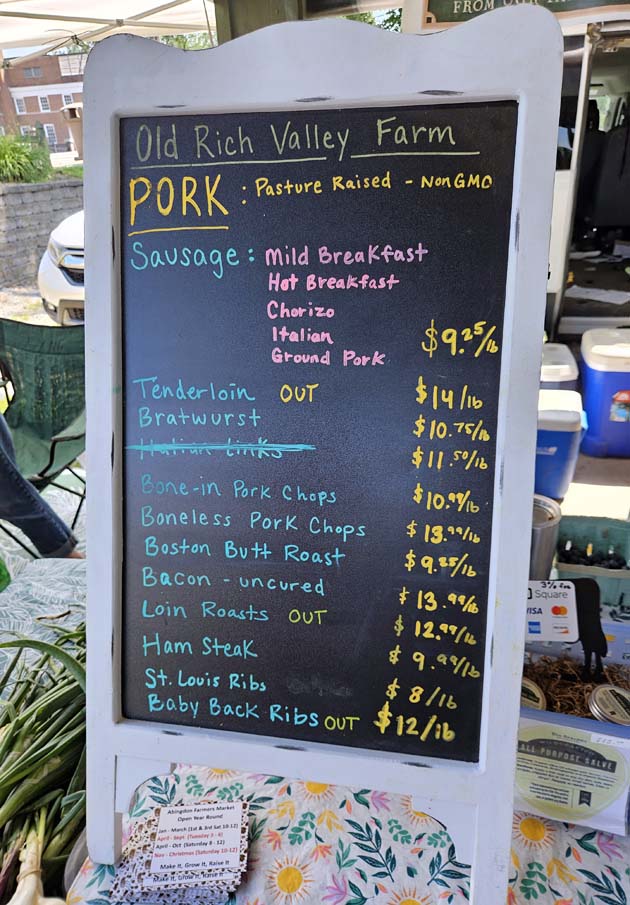 FROM OUR
Old Rich Valley Farm
PORK : Pasture Raised - NonGMO
Sausage : Mild Breakfast
Hot Breakfast
Chorizo
Italian
Ground Pork $9.25/lb
Tenderloin OUT $14/lb
Bratwurst $10.75/lb
Italian Links $11.50/lb
Bone-in Pork Chops $10.99/lb
Boneless Pork Chops $13.99/lb
Boston Butt Roast $9.25/lb
Bacon - uncured $13.99/lb
Loin Roasts OUT $12.99/lb
Ham Steak $9.99/lb
St. Louis Ribs $8/lb
Baby Back Ribs OUT $12/lb
Square
VISA
ALL PURPOSE SALVE
Abingdon Farmers Market
Open Year Round
Jan - March (1st & 3rd Sat 10-12)
April - Sept. (Tuesday 3 - 6)
April - Oct (Saturday 8 - 12)
Nov - Christmas (Saturday 10-12)
Make It, Grow It, Raise It
Make It, Grow It, Raise It